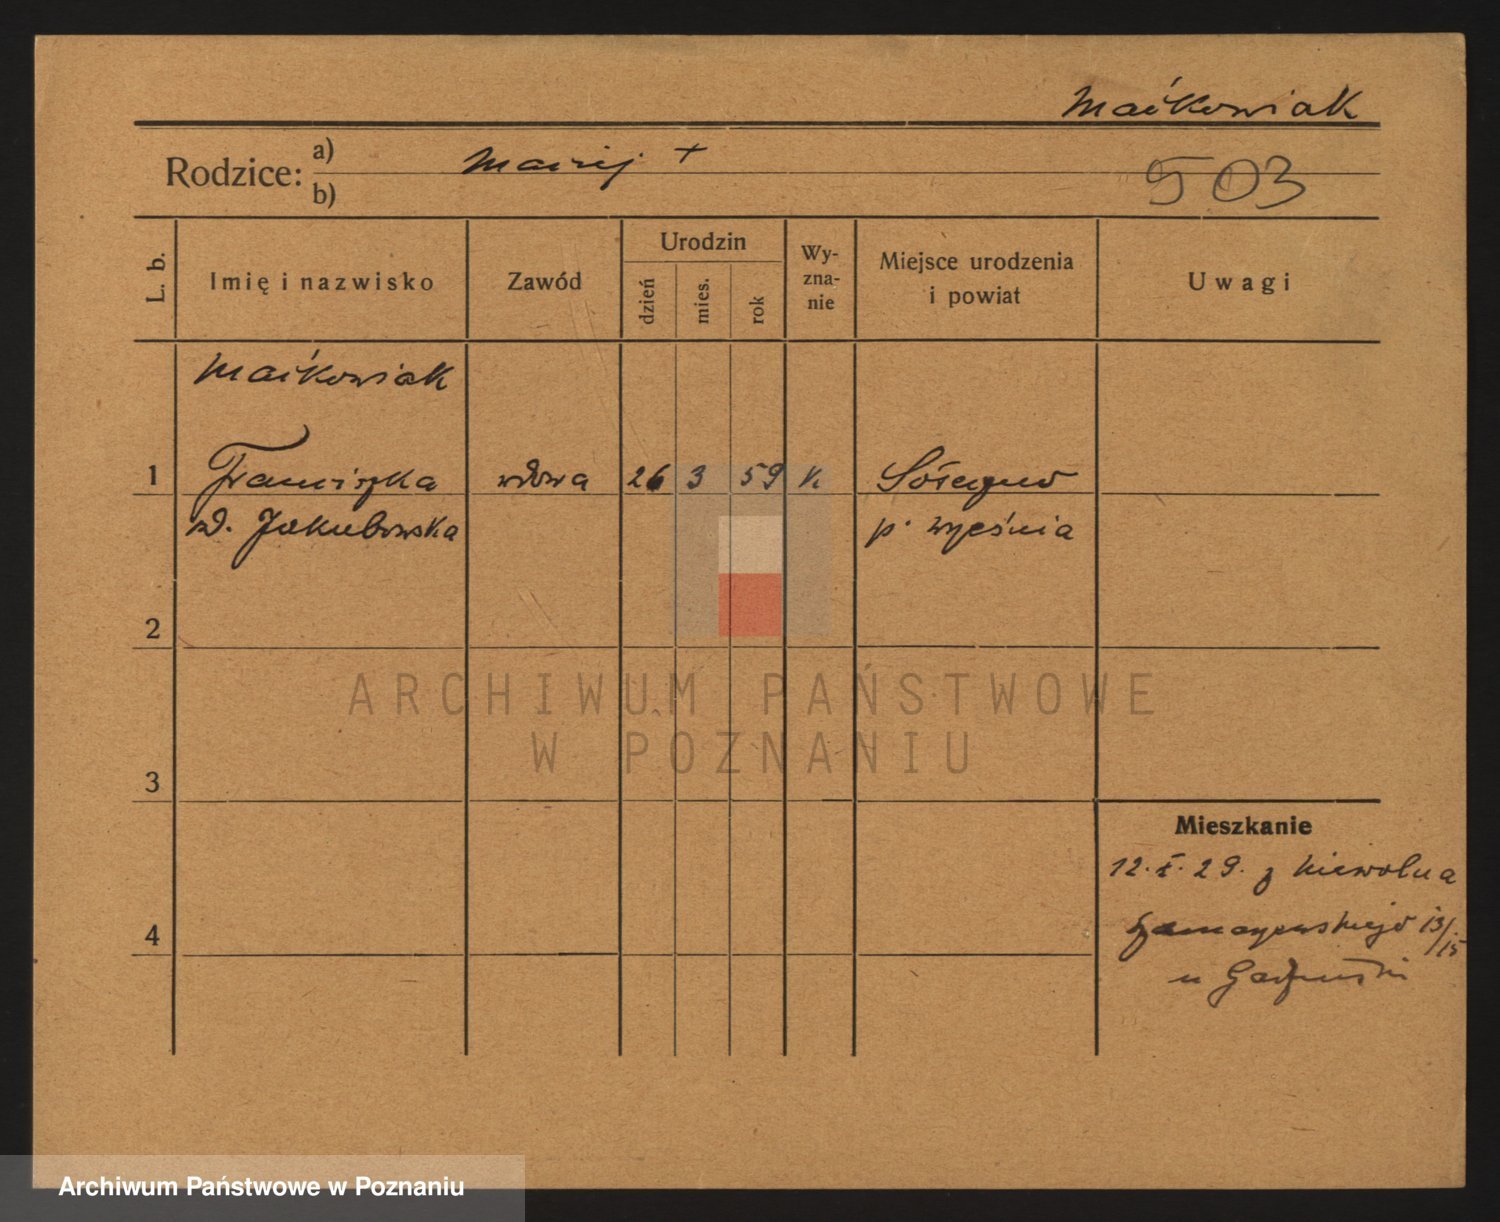 Maćkowiak
Rodzice: a) Maciej +
b)
503
L. b. Imię i nazwisko Zawód Urodzin dzień mies. rok Wyznanie Miejsce urodzenia i powiat Uwagi
Maćkowiak
1 Franciszka wdowa 26 3 59 k.
zd. Jakubowska p. Września
2
ARCHIWUM PAŃSTWOWE
W POZNANIU
3
Mieszkanie
12. X. 29. z Niewolna
4
13/15
u
Archiwum Państwowe w Poznaniu